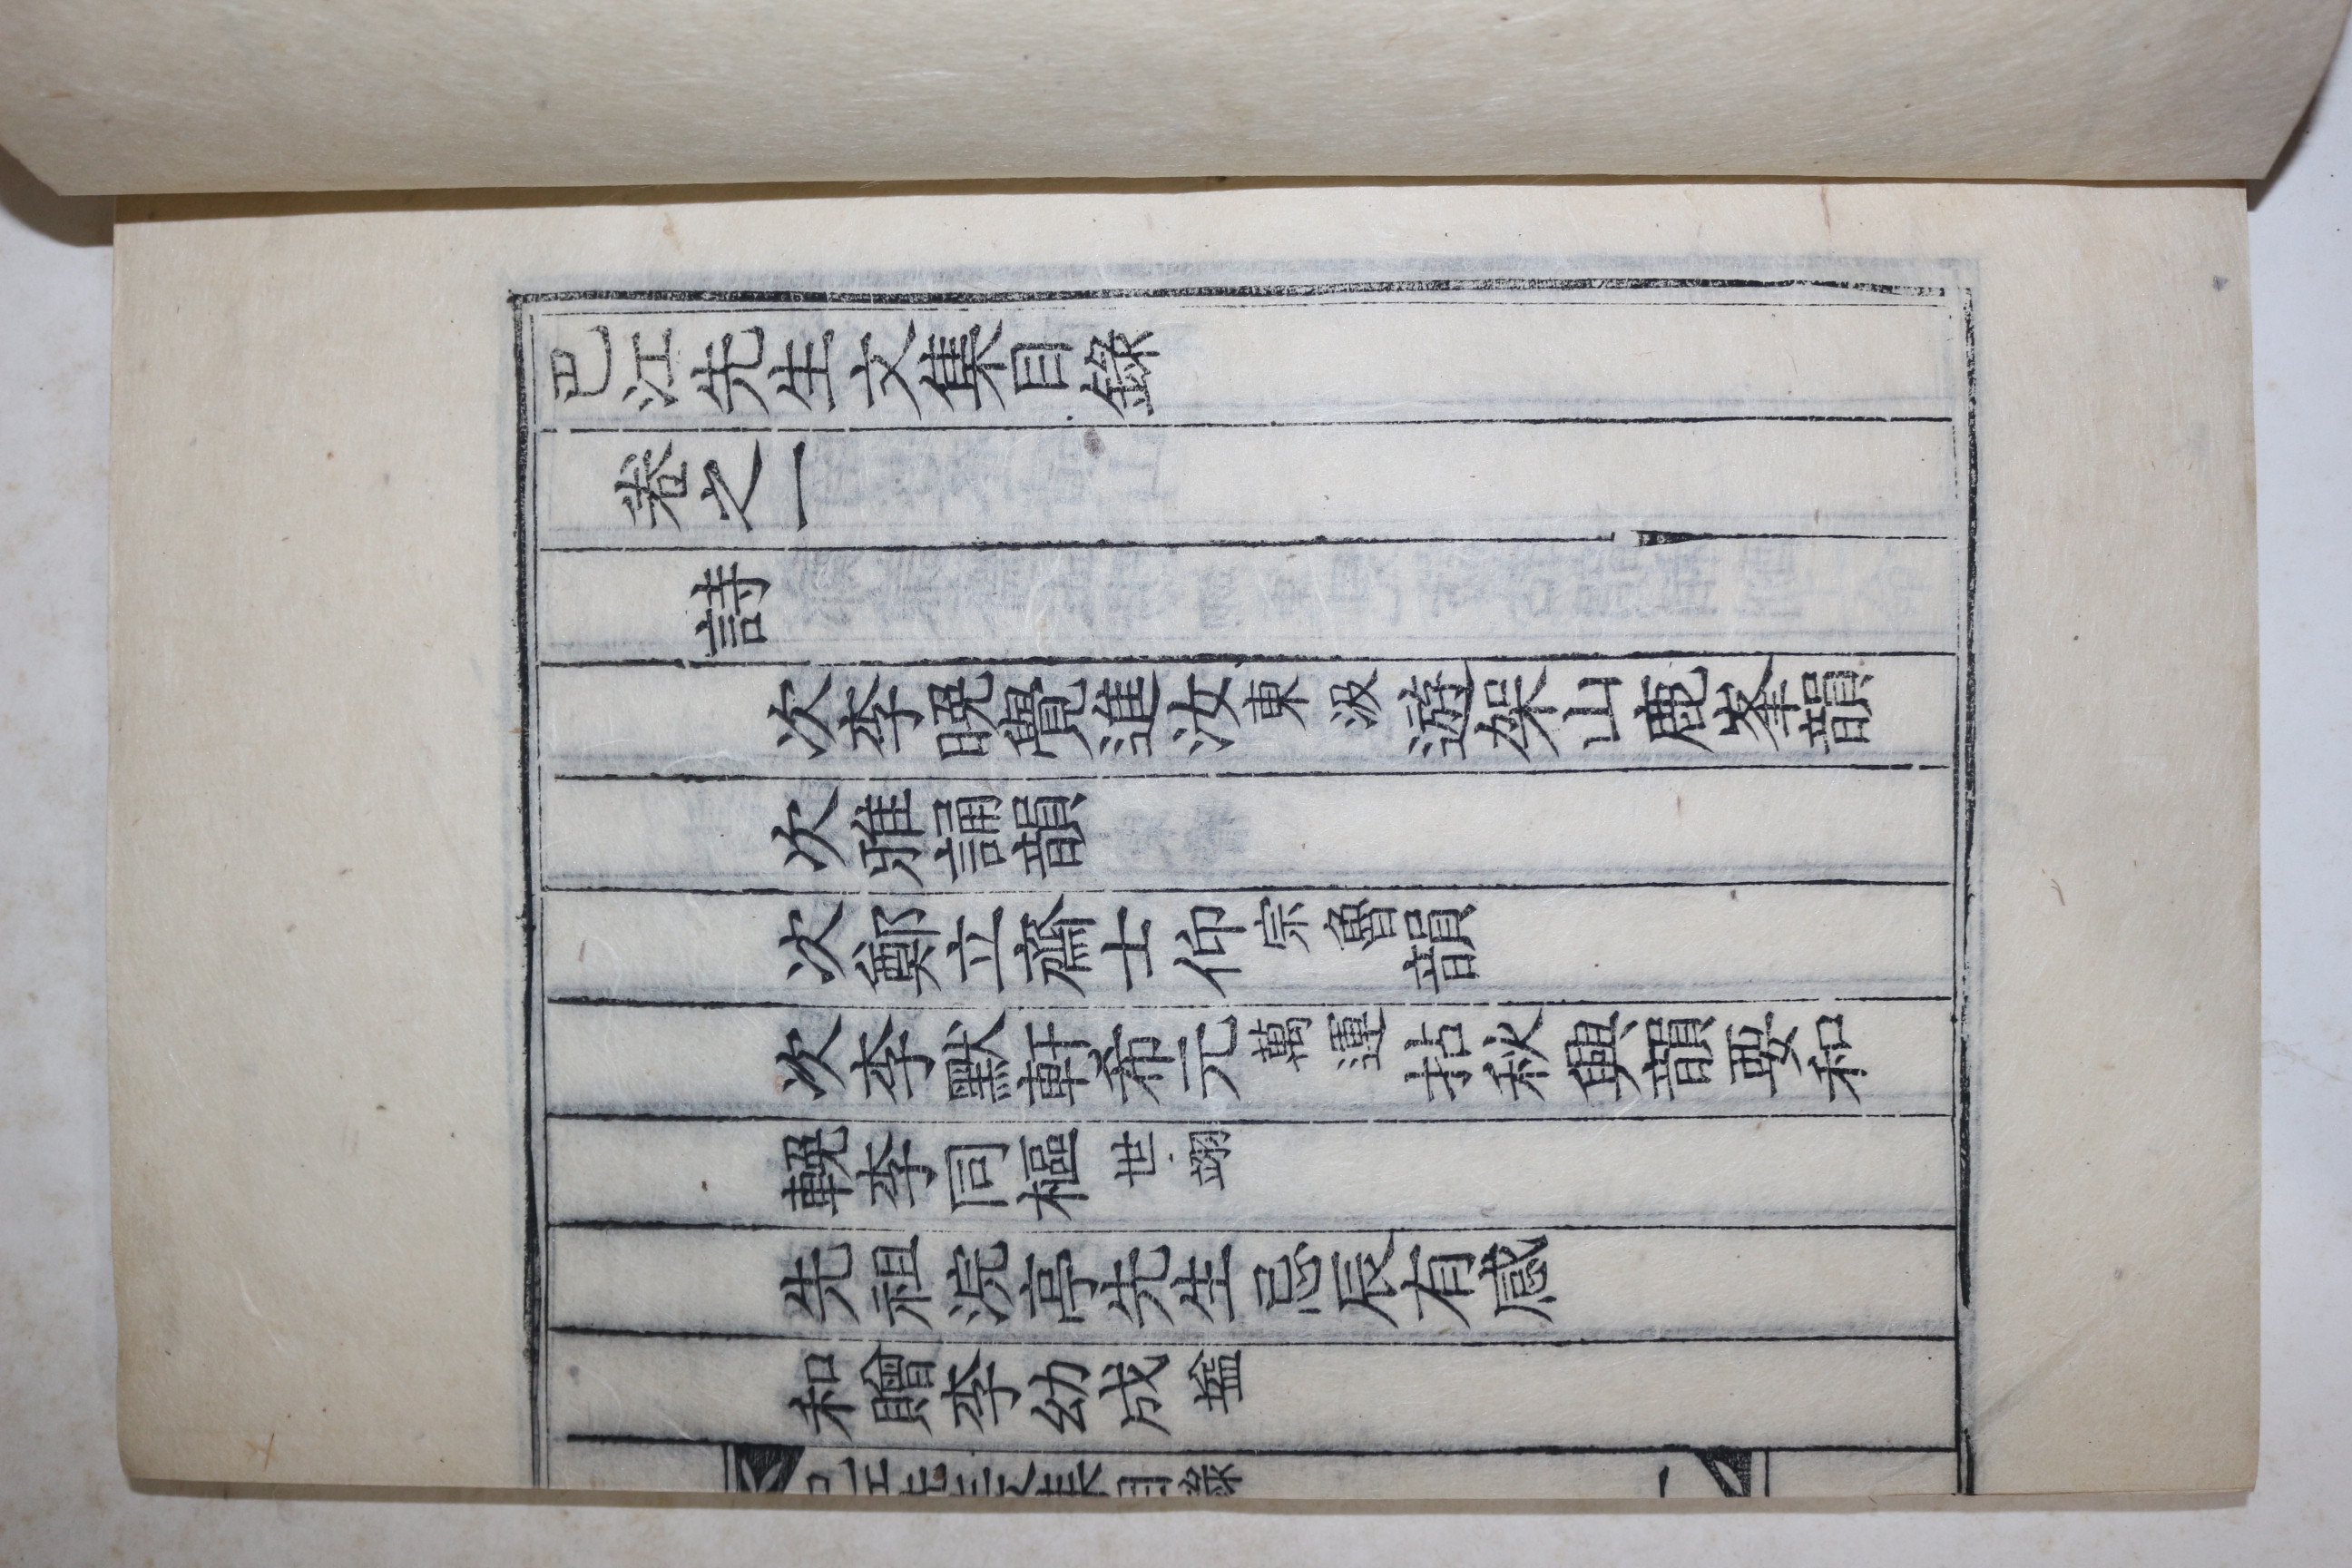 巴江先生文集目錄
卷之一
詩
次李晩覺進汝東汲遊架山鹿峯韻
次雅誦韻
次鄭立齋士仰宗魯韻
次李默軒希元萬運拈秋興韻要和
輓李同樞世翊
先祖浣亭先生忌辰有感
和贈李幼成
巴江先生文集目錄 一